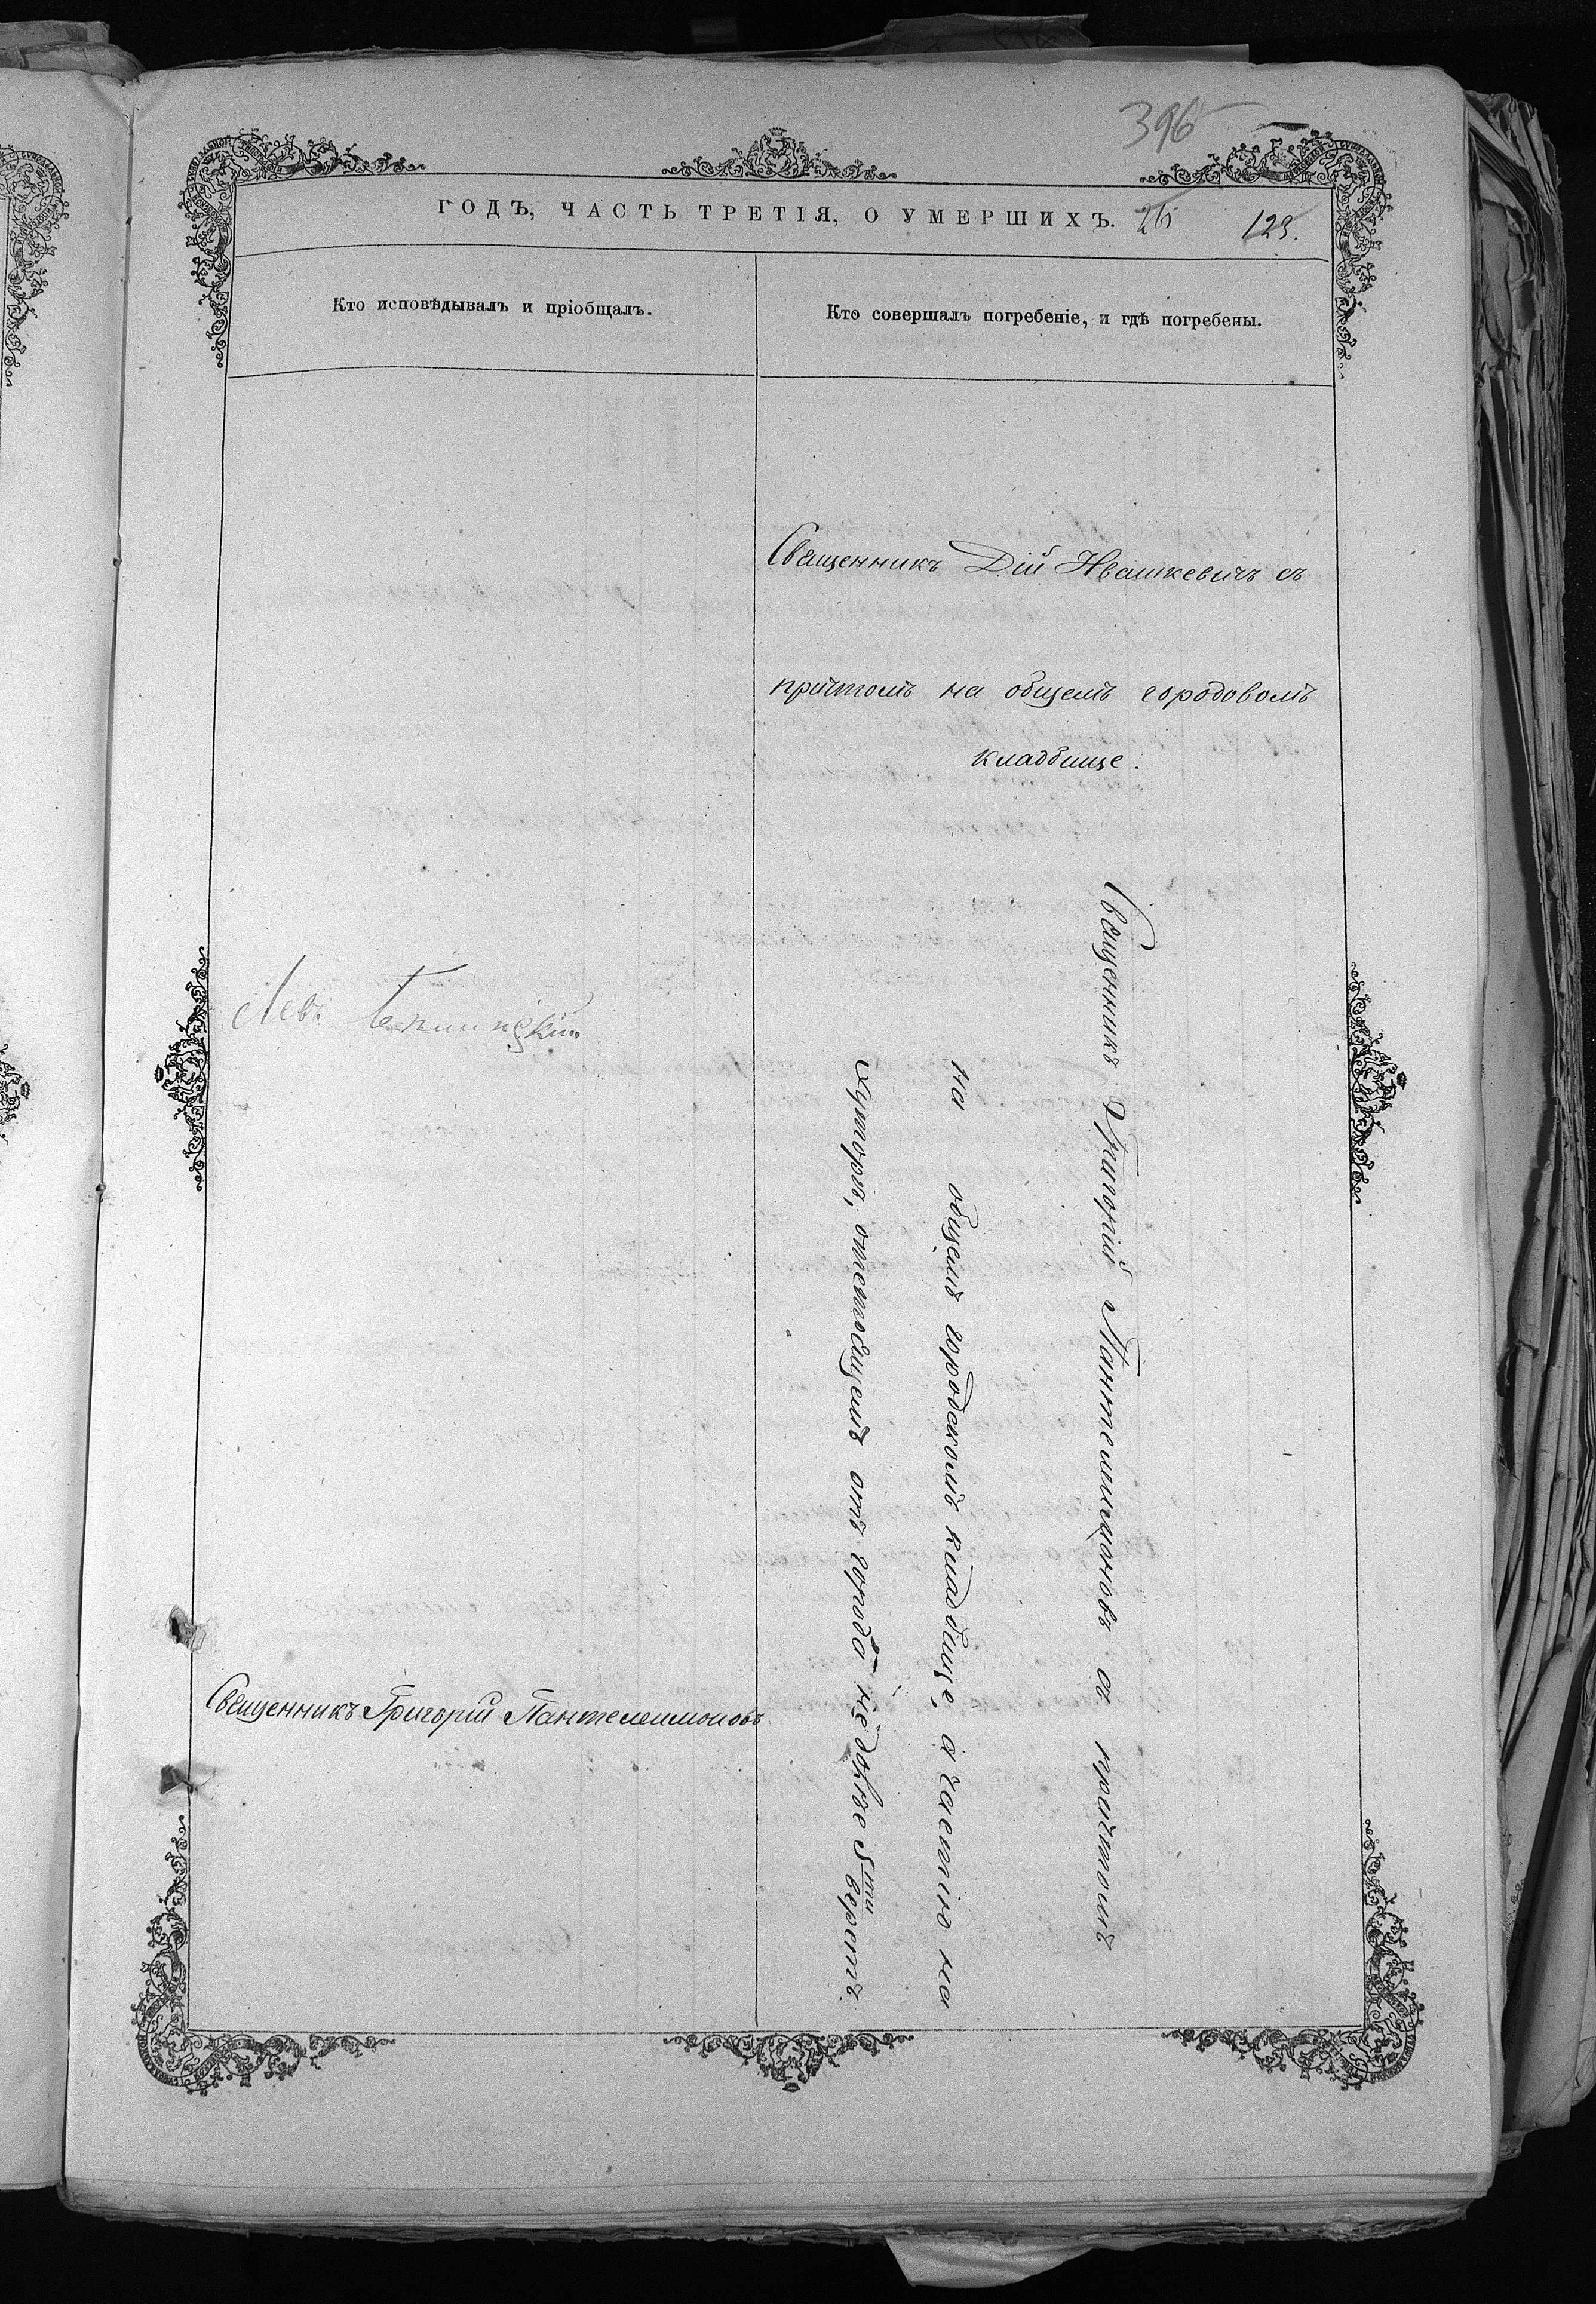 396
ГОДЪ, ЧАСТЬ ТРЕТІЯ, О УМЕРШИХЪ. 265 123.
Кто исповѣдывалъ и пріобщалъ.
Кто совершалъ погребеніе, и гдѣ погребены.
Священникъ Дій Ивашкевичъ съ
причтомъ на общемъ городовомъ
кладбище.
Левъ
Священникъ Григорій Пантелеимоновъ
Священникъ Григорій Пантелеимоновъ съ причтомъ
на общемъ городскомъ кладбище, а частію на
хуторѣ, отстоящемъ отъ города не далѣе 5ти верстъ.